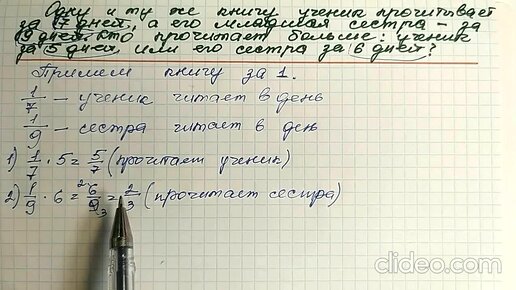 Одну и ту же книгу ученик прочитывает
за 7 дней, а его младшая сестра - за
9 дней. Кто прочитает больше: ученик
за 5 дней или его сестра за 6 дней?
Примем книгу за 1.
1/7 - ученик читает в день
1/9 - сестра читает в день
1) 1/7 · 5 = 5/7 (прочитает ученик)
2) 1/9 · 6 = 6/9 = 2/3 (прочитает сестра)
clideo.com